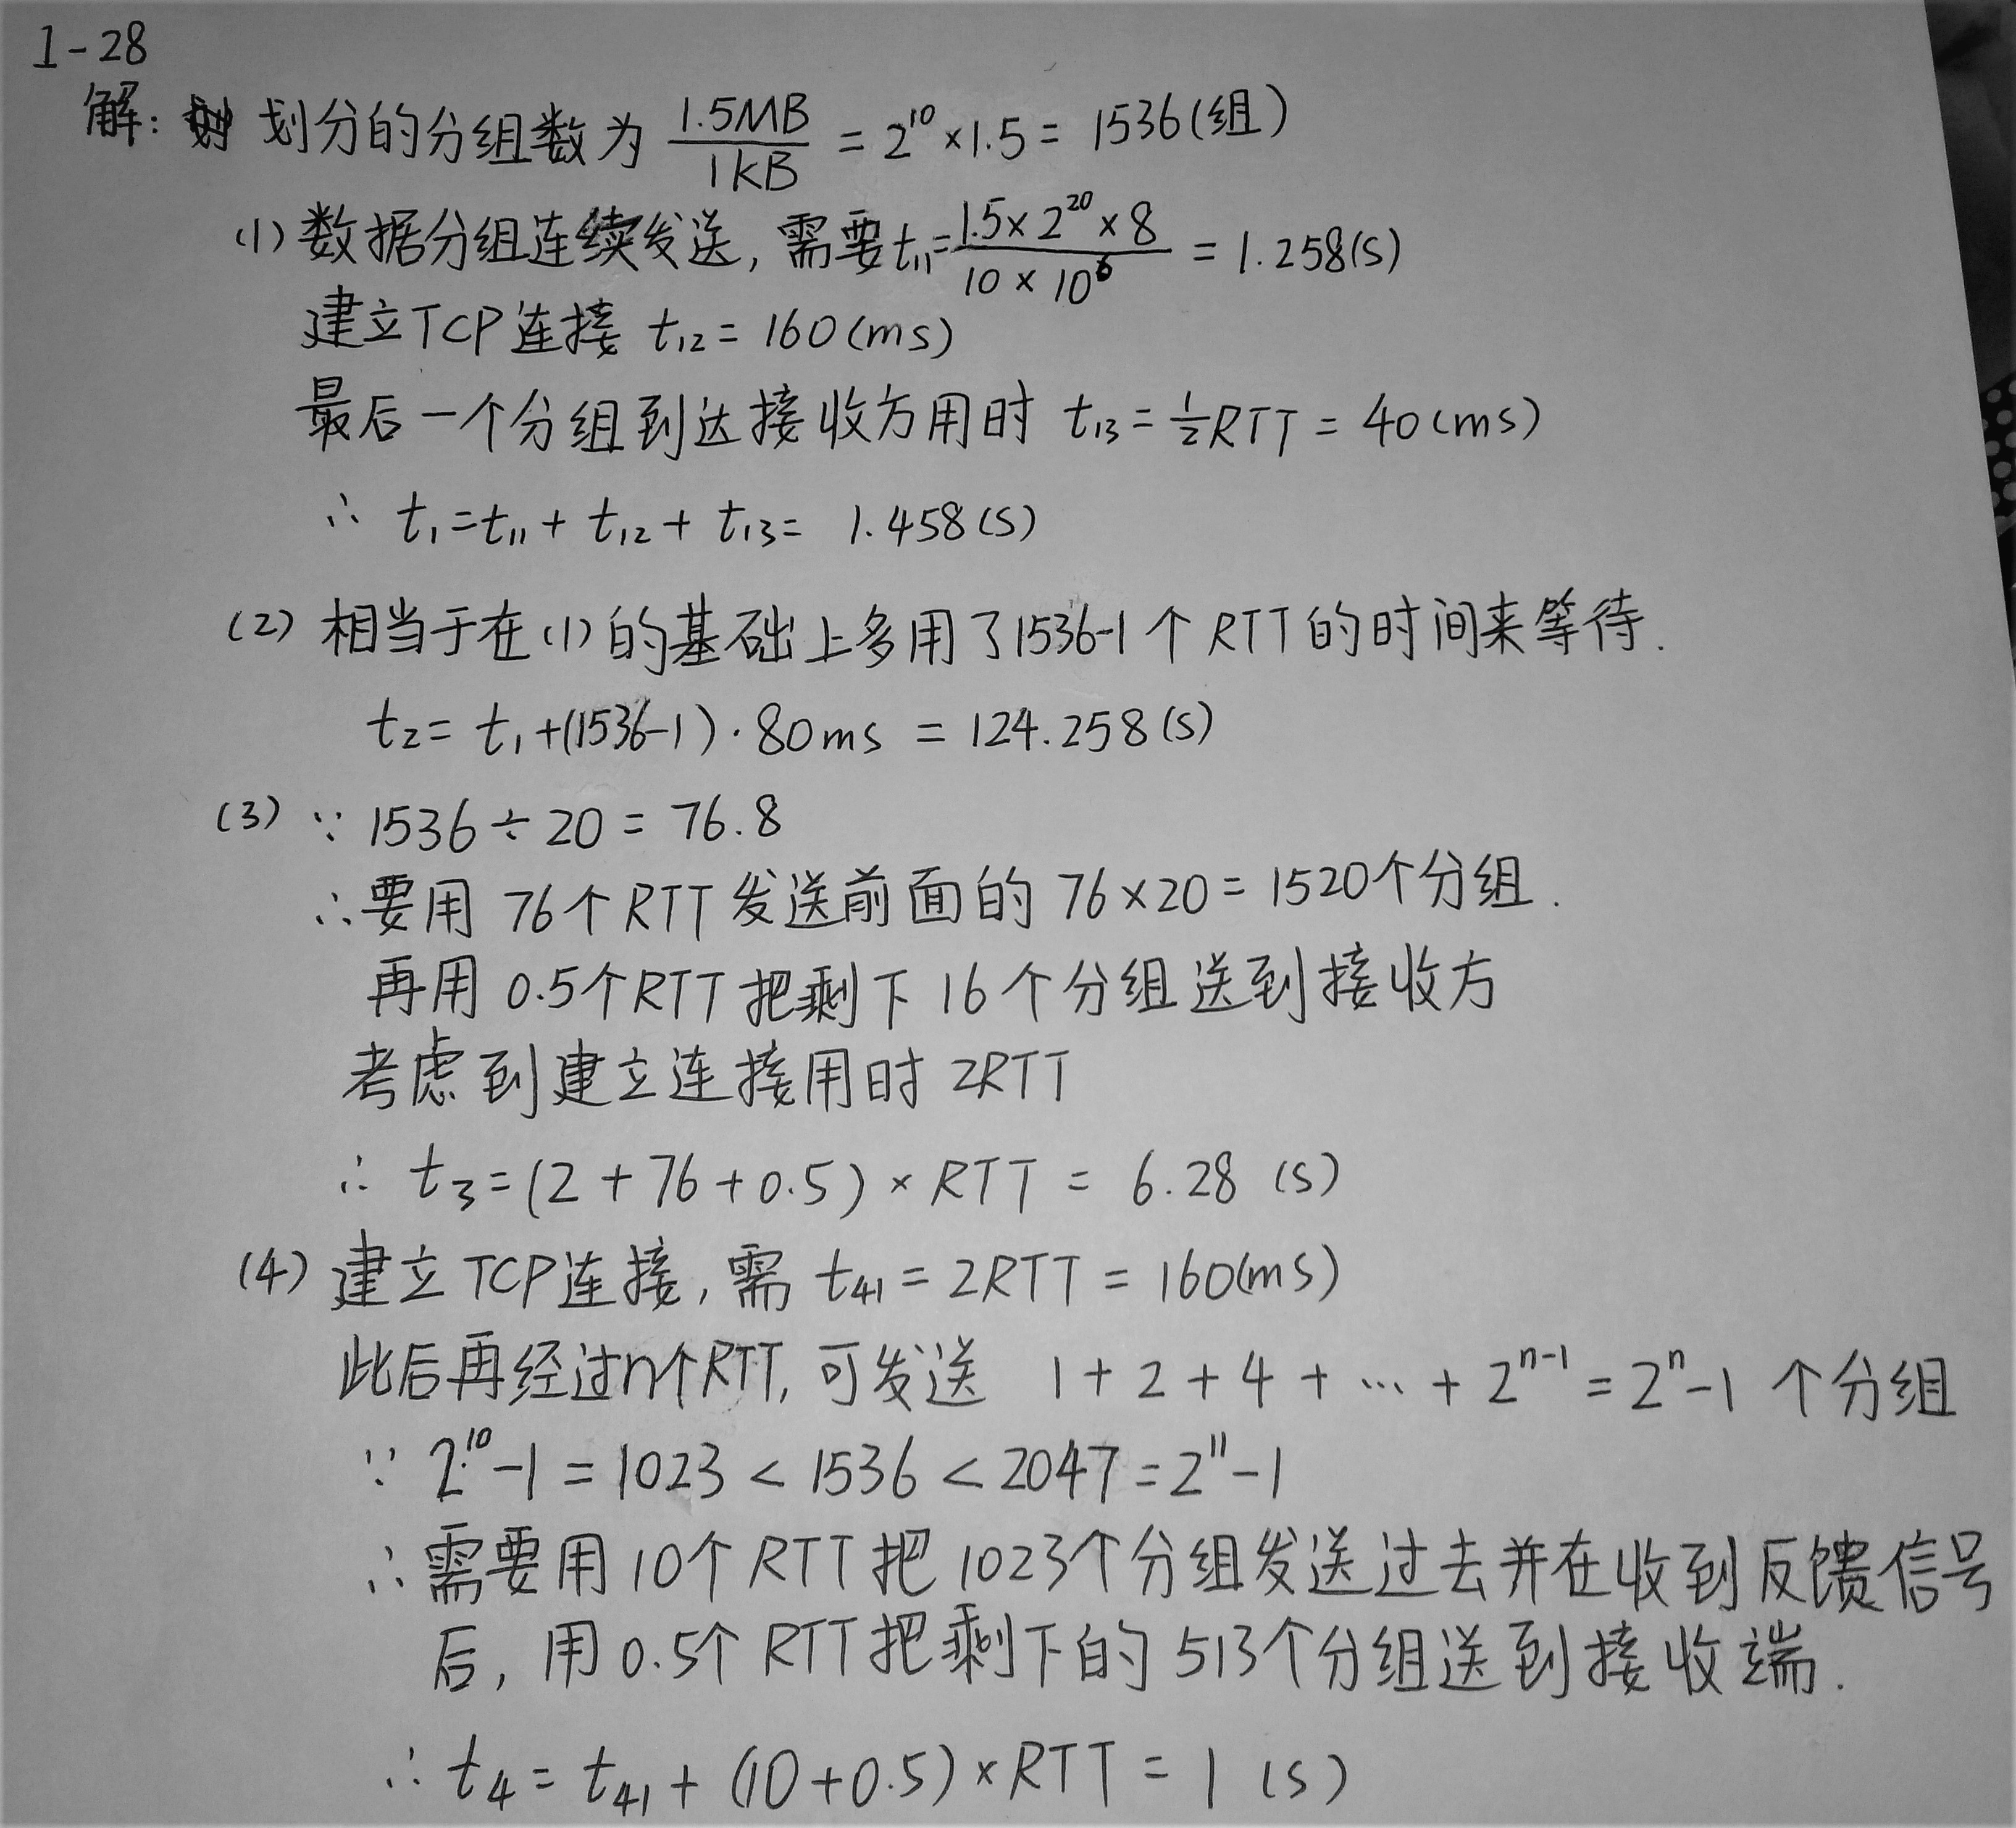 1-28
解: 划分的分组数为 1.5MB/1kB = 2^10 ×1.5 = 1536(组)
(1) 数据分组连续发送, 需要t₁₁= 1.5×2^20×8 / 10×10^6 = 1.258(s)
建立TCP连接 t₁₂= 160(ms)
最后一个分组到达接收方用时 t₁₃= ½RTT = 40(ms)
∴ t₁=t₁₁+ t₁₂+ t₁₃= 1.458(s)
(2) 相当于在(1)的基础上多用了1536-1个RTT的时间来等待.
t₂= t₁+(1536-1)·80ms = 124.258(s)
(3) ∵ 1536÷20 = 76.8
∴要用 76个RTT发送前面的 76×20= 1520个分组.
再用 0.5个RTT把剩下16个分组送到接收方
考虑到建立连接用时 2RTT
∴ t₃=(2+76+0.5)×RTT = 6.28 (s)
(4) 建立TCP连接, 需 t₄₁= 2RTT = 160(ms)
此后再经过n个RTT, 可发送 1+2+4+…+2^(n-1) = 2^n-1 个分组
∵ 2^10-1 = 1023 < 1536 < 2047 = 2^11-1
∴需要用10个RTT把1023个分组发送过去并在收到反馈信号
后, 用0.5个RTT把剩下的513个分组送到接收端.
∴ t₄= t₄₁+ (10+0.5)×RTT = 1 (s)